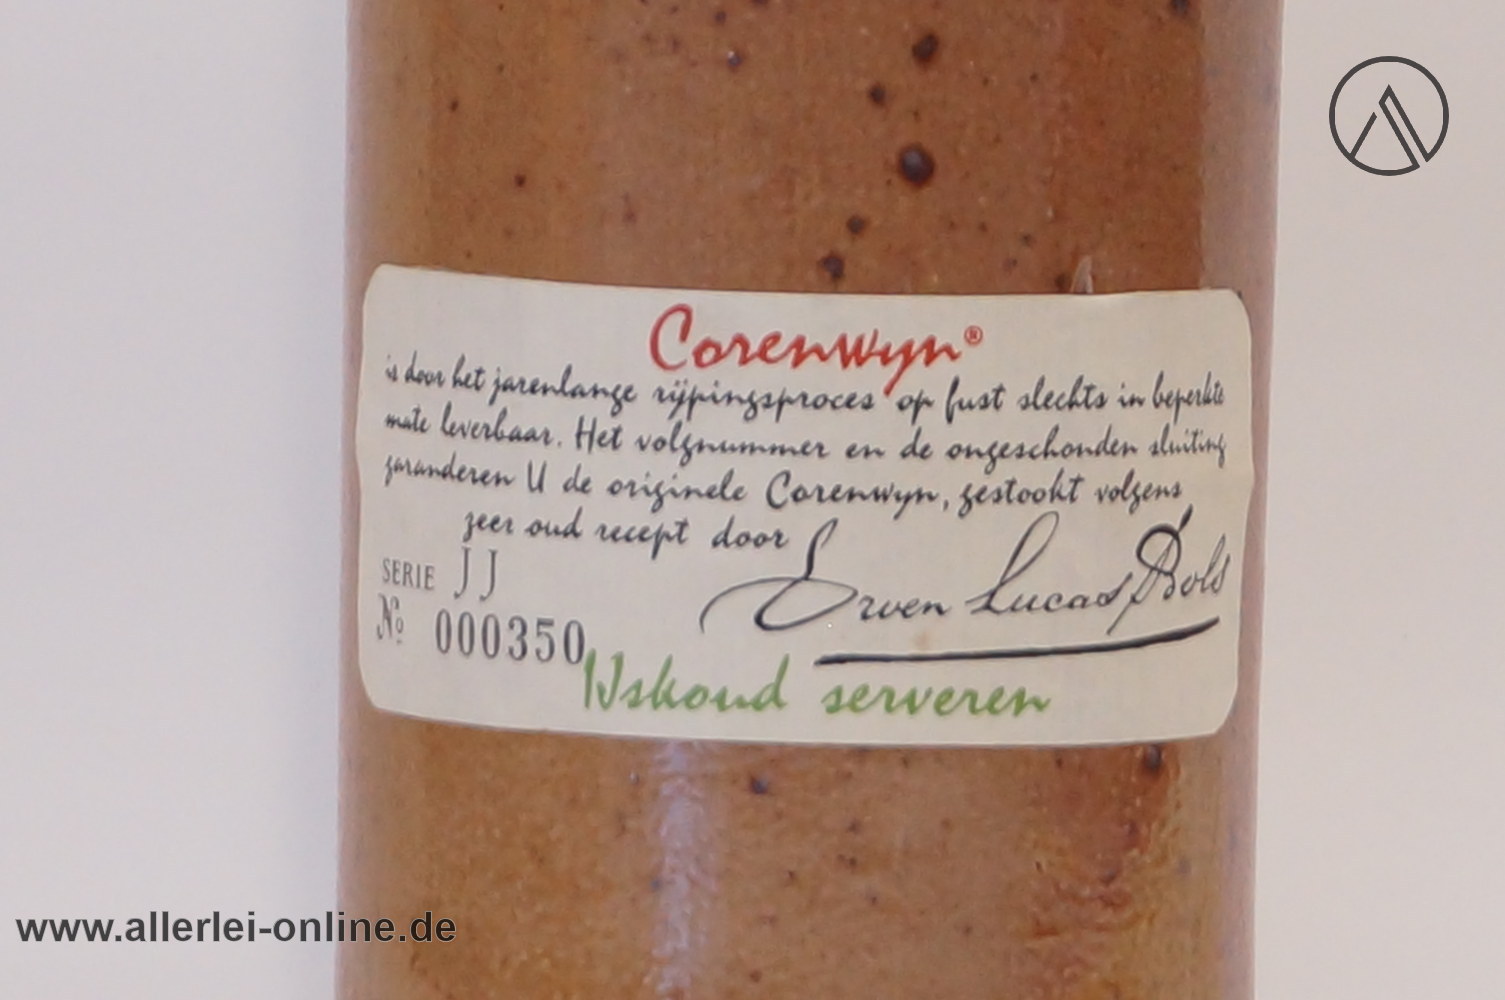 Corenwyn®
is door het jarenlange rijpingsproces op fust slechts in beperkte
mate leverbaar. Het volgnummer en de ongeschonden sluiting
garanderen U de originele Corenwyn, gestookt volgens
zeer oud recept door
Erven Lucas Bols
SERIE JJ
No 000350
IJskoud serveren
www.allerlei-online.de